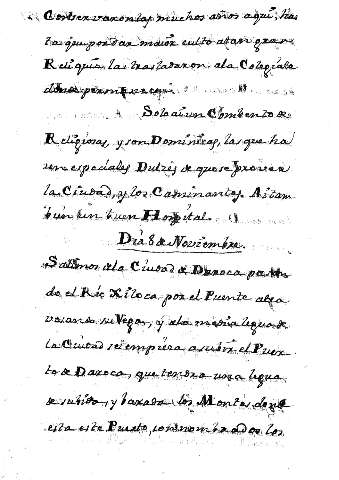 Conservaronlas muchos años aqui, has
ta que por dar maior culto atan gran
Reliquia las trasladaron ala Colegiata
donde permanecen
Solo ai un Combento de
Religiosas, y son Dominicas, las que ha
zen especiales Dulzes de que se proveen
la Ciudad, y los Caminantes. Ai tam
bien un buen Hospital.
Dia 8 de Noviembre.
Salimos de la Ciudad de Daroca pasan
do el Rio Xiloca por el Puente atra
vesando su Vega, y ala media legua de
la Ciudad se empieza a subir el Puer
to de Daroca, que tendra una legua
de subida, y baxada los Montes donde
esta este Puerto, son nombrados los